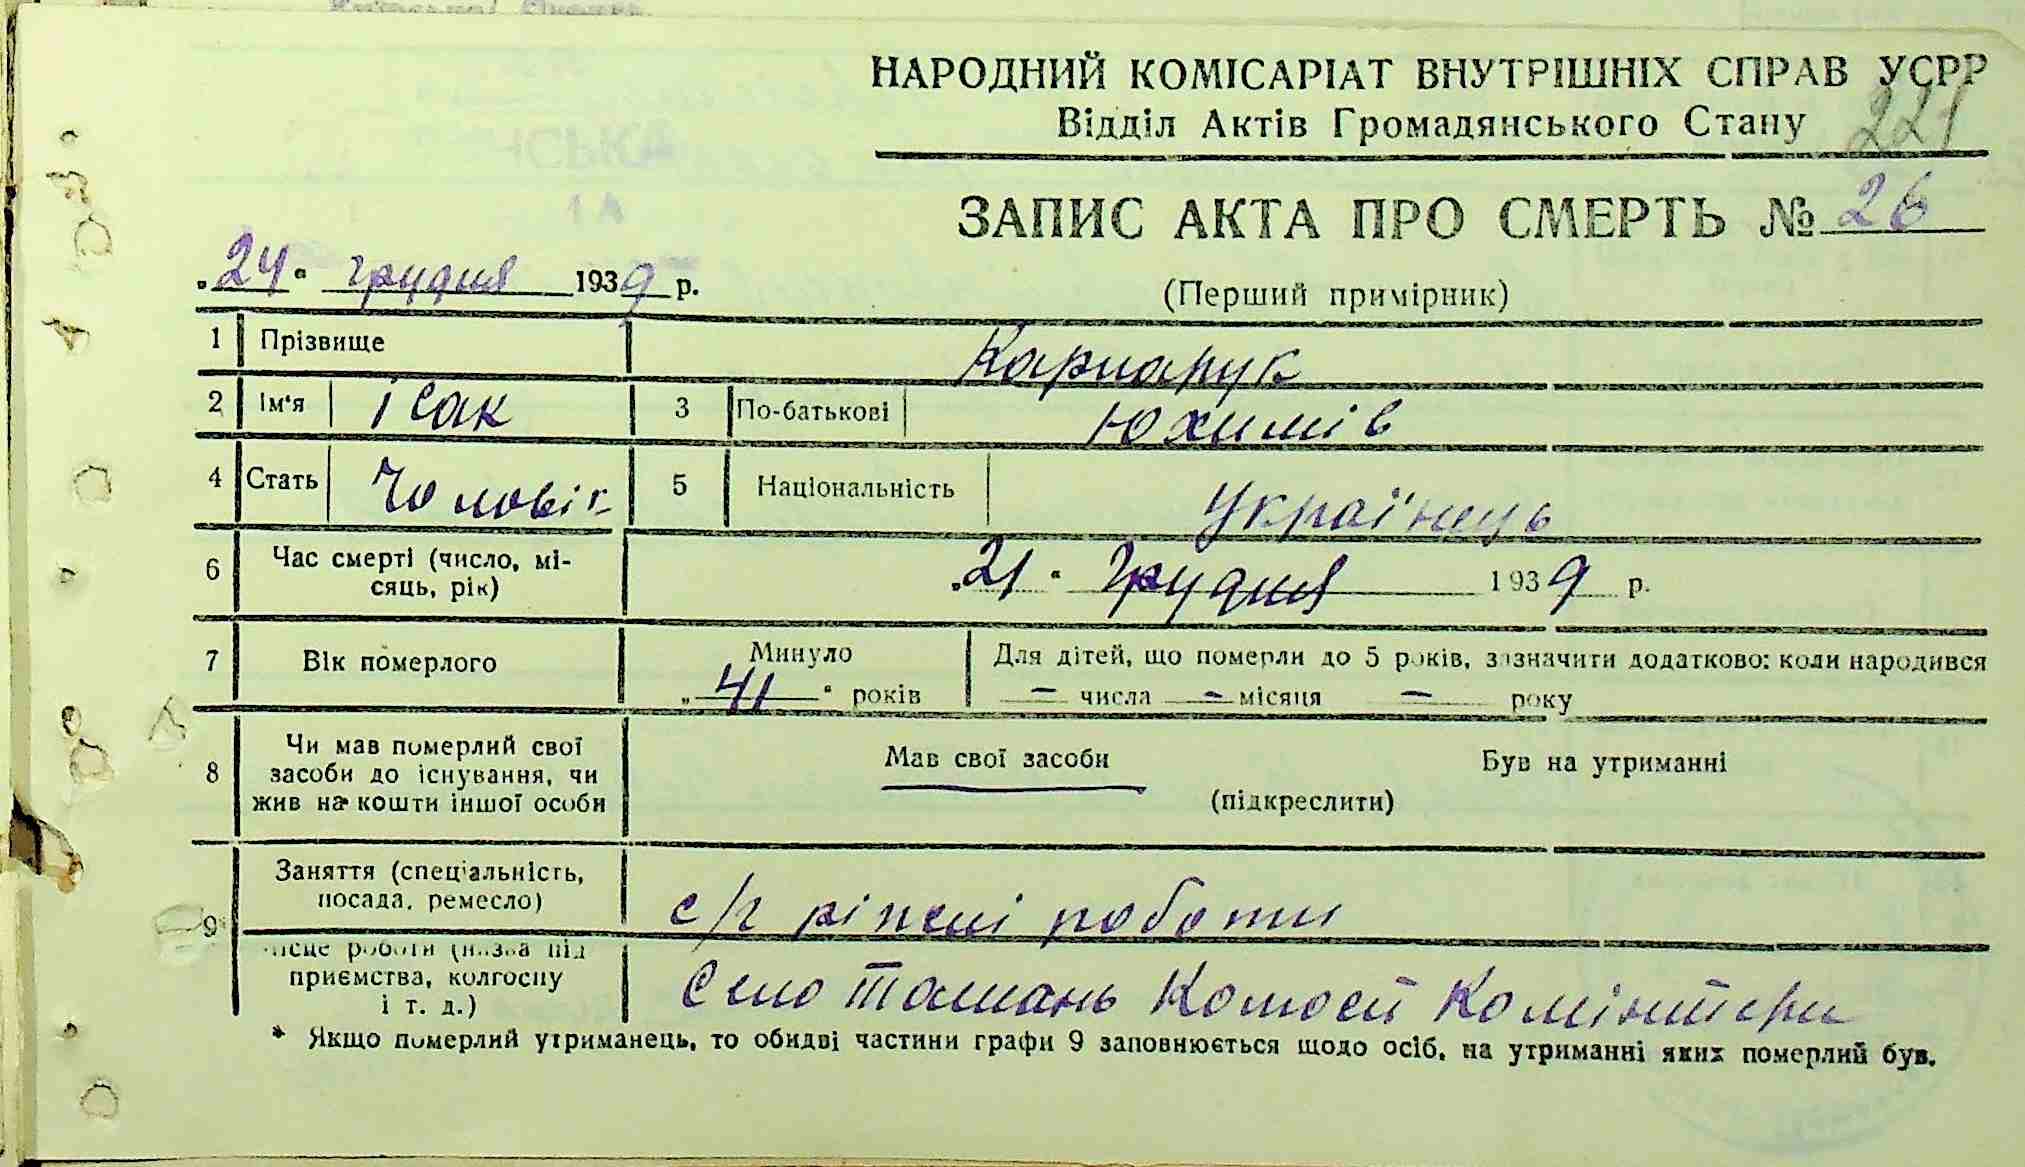 НАРОДНИЙ КОМІСАРІАТ ВНУТРІШНІХ СПРАВ УСРР
Відділ Актів Громадянського Стану
221
ЗАПИС АКТА ПРО СМЕРТЬ № 26
„24“ грудня 1939 р.
(Перший примірник)
1 Прізвище Карпарук
2 Ім'я Ісак 3 По-батькові Юхимів
4 Стать Чоловік 5 Національність Українець
6 Час смерті (число, мі-
сяць, рік) „21“ Грудня 1939 р.
7 Вік померлого Минуло „41“ років
Для дітей, що померли до 5 років, зазначити додатково: коли народився
— числа — місяця — року
8 Чи мав померлий свої
засоби до існування, чи
жив на кошти іншої особи
Мав свої засоби Був на утриманні
(підкреслити)
9 Заняття (спеціальність,
посада, ремесло) с/г ріжні роботи
місце роботи (назва під
приємства, колгоспу
і т. д.) Село Ташань Комінтерн
* Якщо померлий утриманець, то обидві частини графи 9 заповнюється щодо осіб, на утриманні яких померлий був.